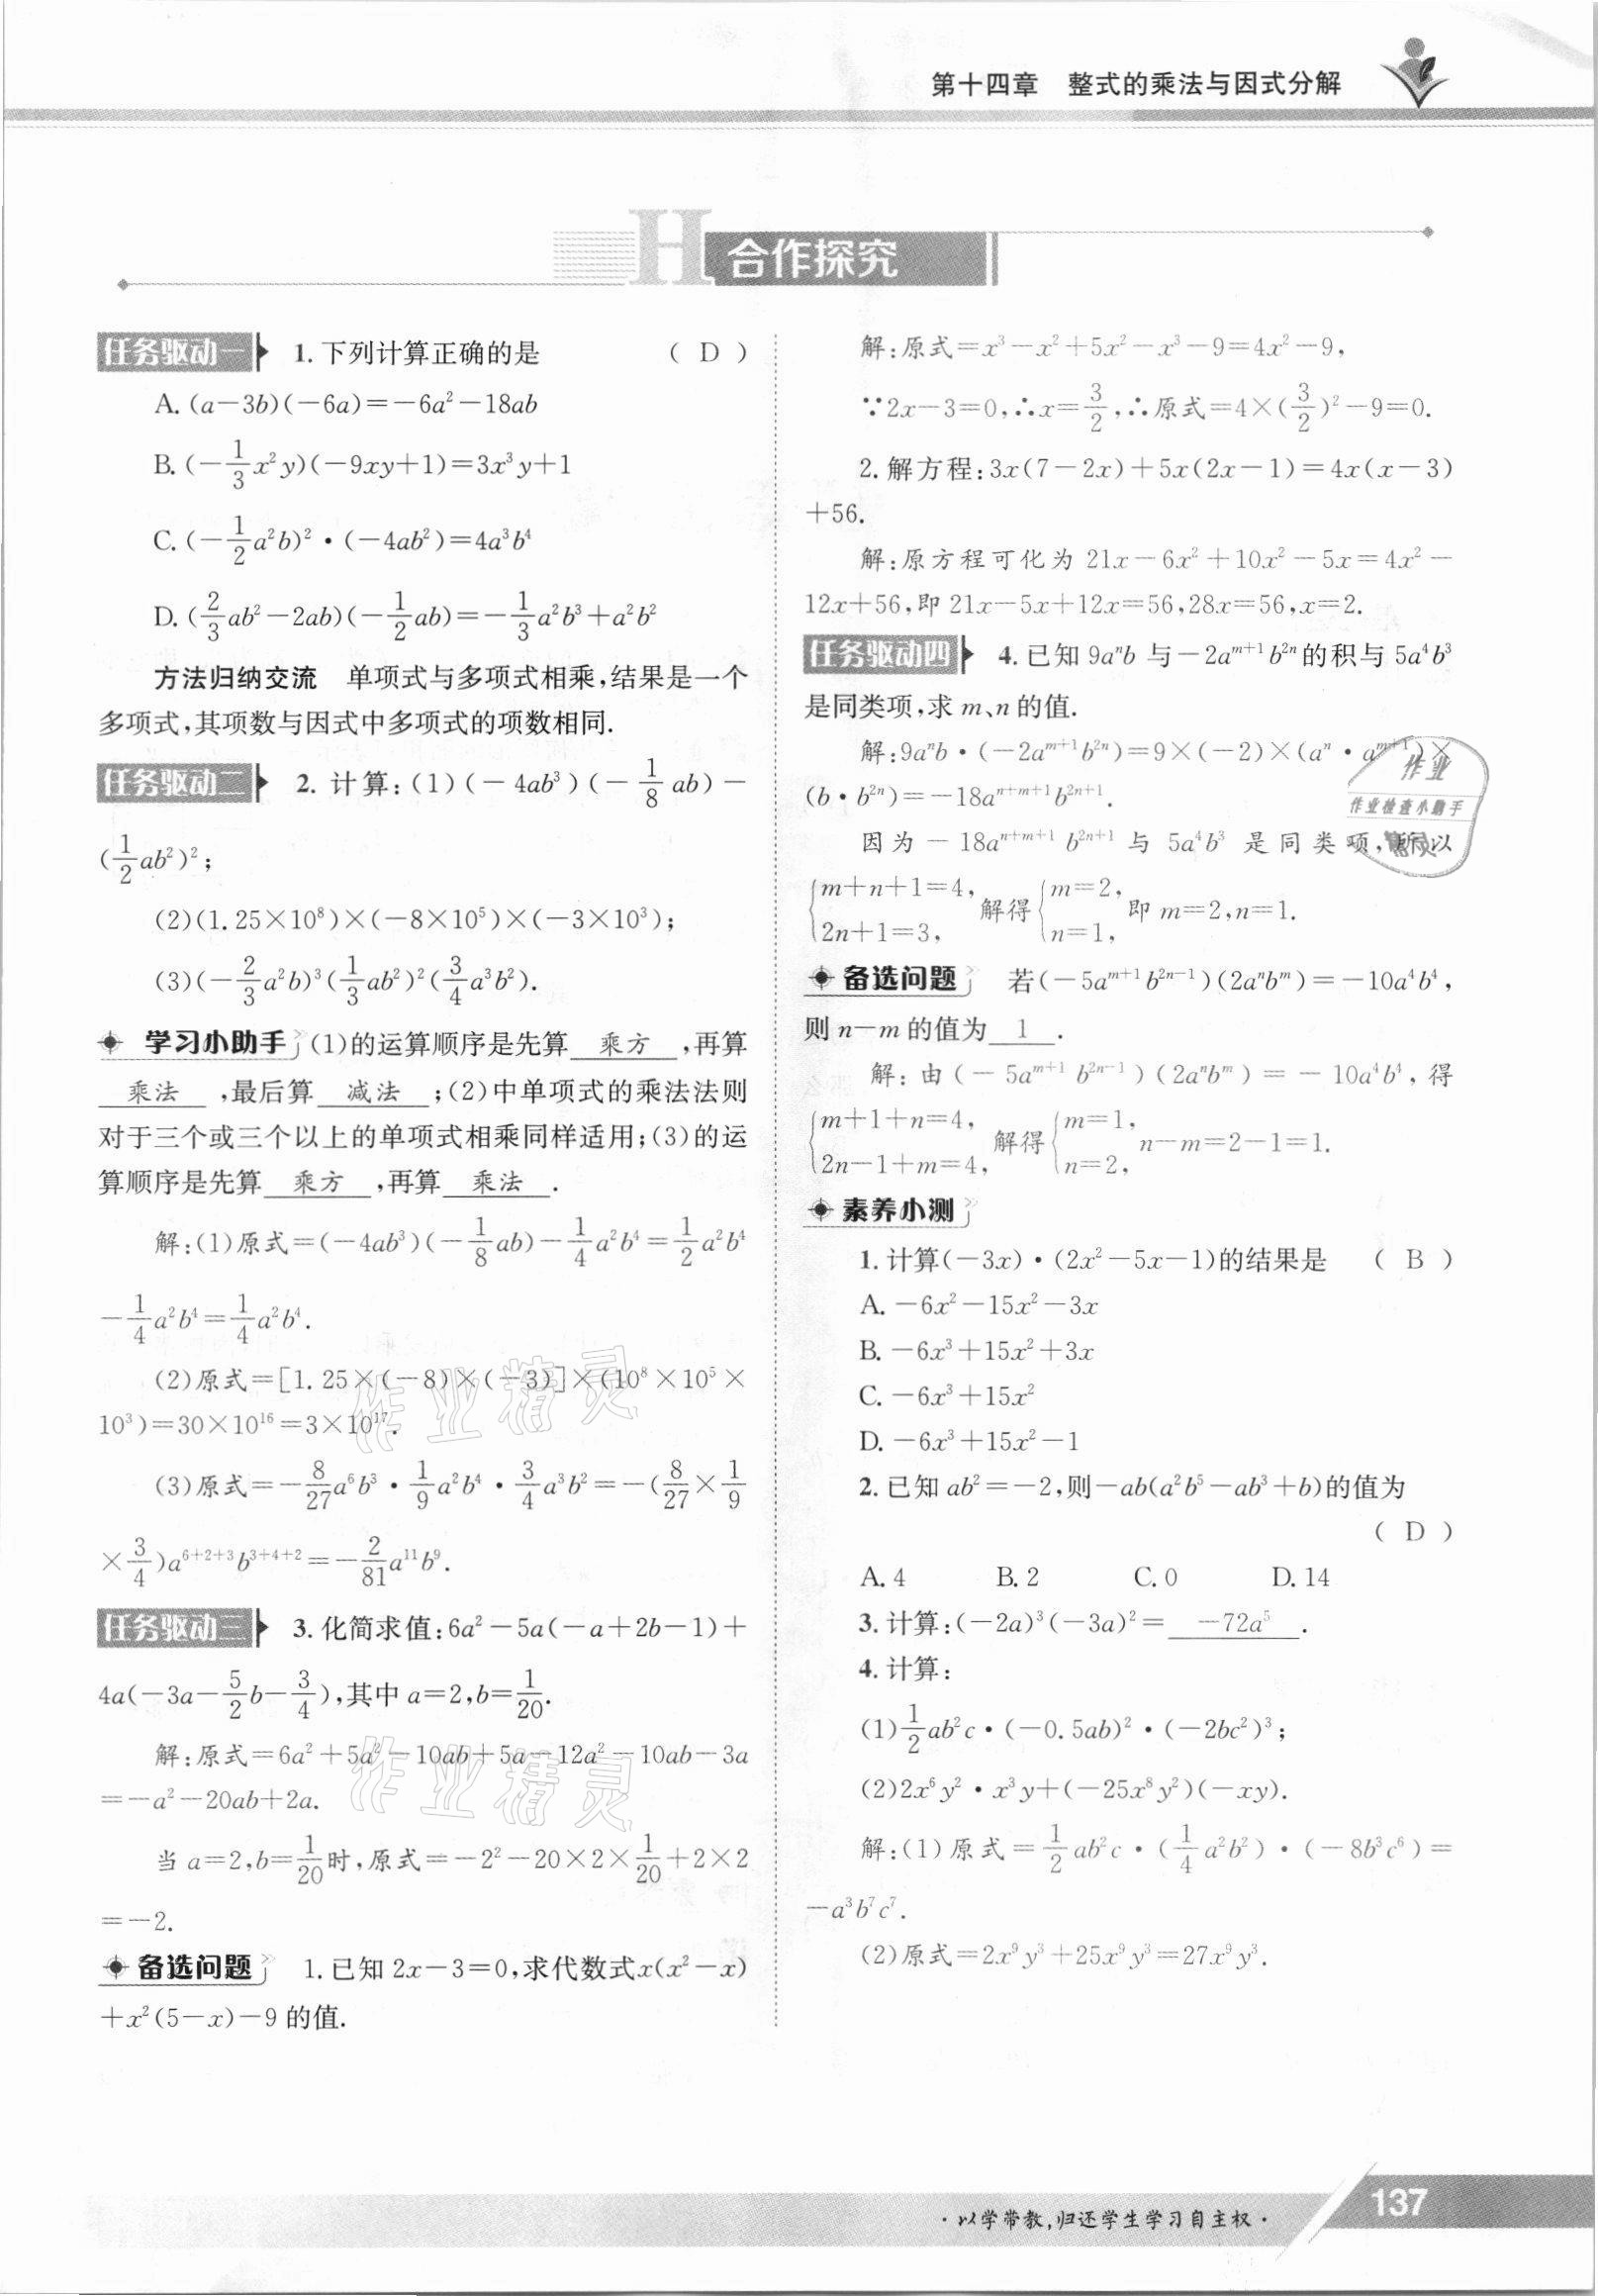 第十四章　整式的乘法与因式分解
H 合作探究
任务驱动一　1. 下列计算正确的是　( D )
A. (a－3b)(－6a)＝－6a²－18ab
B. (－1/3x²y)(－9xy＋1)＝3x³y＋1
C. (－1/2a²b)²·(－4ab²)＝4a³b⁴
D. (2/3ab²－2ab)(－1/2ab)＝－1/3a²b³＋a²b²
方法归纳交流　单项式与多项式相乘,结果是一个
多项式,其项数与因式中多项式的项数相同.
任务驱动二　2. 计算:(1)(－4ab³)(－1/8ab)－
(1/2ab²)²;
(2)(1.25×10⁸)×(－8×10⁵)×(－3×10³);
(3)(－2/3a²b)³(1/3ab²)²(3/4a³b²).
学习小助手　(1)的运算顺序是先算 乘方 ,再算
乘法 ,最后算 减法 ;(2)中单项式的乘法法则
对于三个或三个以上的单项式相乘同样适用;(3)的运
算顺序是先算 乘方 ,再算 乘法 .
解:(1)原式＝(－4ab³)(－1/8ab)－1/4a²b⁴＝1/2a²b⁴
－1/4a²b⁴＝1/4a²b⁴.
(2)原式＝[1.25×(－8)×(－3)]×(10⁸×10⁵×
10³)＝30×10¹⁶＝3×10¹⁷.
(3)原式＝－8/27a⁶b³·1/9a²b⁴·3/4a³b²＝－(8/27×1/9
×3/4)a⁶⁺²⁺³b³⁺⁴⁺²＝－2/81a¹¹b⁹.
任务驱动三　3. 化简求值:6a²－5a(－a＋2b－1)＋
4a(－3a－5/2b－3/4),其中a＝2,b＝1/20.
解:原式＝6a²＋5a²－10ab＋5a－12a²－10ab－3a
＝－a²－20ab＋2a.
当a＝2,b＝1/20时,原式＝－2²－20×2×1/20＋2×2
＝－2.
备选问题　1. 已知2x－3＝0,求代数式x(x²－x)
＋x²(5－x)－9的值.
解:原式＝x³－x²＋5x²－x³－9＝4x²－9,
∵2x－3＝0,∴x＝3/2,∴原式＝4×(3/2)²－9＝0.
2. 解方程:3x(7－2x)＋5x(2x－1)＝4x(x－3)
＋56.
解:原方程可化为21x－6x²＋10x²－5x＝4x²－
12x＋56,即21x－5x＋12x＝56,28x＝56,x＝2.
任务驱动四　4. 已知9aⁿb与－2aᵐ⁺¹b²ⁿ的积与5a⁴b³
是同类项,求m、n的值.
解:9aⁿb·(－2aᵐ⁺¹b²ⁿ)＝9×(－2)×(aⁿ·aᵐ⁺¹)×
(b·b²ⁿ)＝－18aⁿ⁺ᵐ⁺¹b²ⁿ⁺¹.
因为－18aⁿ⁺ᵐ⁺¹b²ⁿ⁺¹与5a⁴b³是同类项,所以
{m＋n＋1＝4, 2n＋1＝3, 解得{m＝2, n＝1, 即m＝2,n＝1.
备选问题　若(－5aᵐ⁺¹b²ⁿ⁻¹)(2aⁿbᵐ)＝－10a⁴b⁴,
则n－m的值为 1 .
解:由(－5aᵐ⁺¹b²ⁿ⁻¹)(2aⁿbᵐ)＝－10a⁴b⁴,得
{m＋1＋n＝4, 2n－1＋m＝4, 解得{m＝1, n＝2, n－m＝2－1＝1.
素养小测
1. 计算(－3x)·(2x²－5x－1)的结果是　( B )
A. －6x²－15x²－3x
B. －6x³＋15x²＋3x
C. －6x³＋15x²
D. －6x³＋15x²－1
2. 已知ab²＝－2,则－ab(a²b⁵－ab³＋b)的值为
( D )
A. 4　B. 2　C. 0　D. 14
3. 计算:(－2a)³(－3a)²＝ －72a⁵ .
4. 计算:
(1)1/2ab²c·(－0.5ab)²·(－2bc²)³;
(2)2x⁶y²·x³y＋(－25x⁸y²)(－xy).
解:(1)原式＝1/2ab²c·(1/4a²b²)·(－8b³c⁶)＝
－a³b⁷c⁷.
(2)原式＝2x⁹y³＋25x⁹y³＝27x⁹y³.
作业
作业检查小助手
精灵
作业精灵
作业精灵
·以学带教,归还学生学习自主权·
137